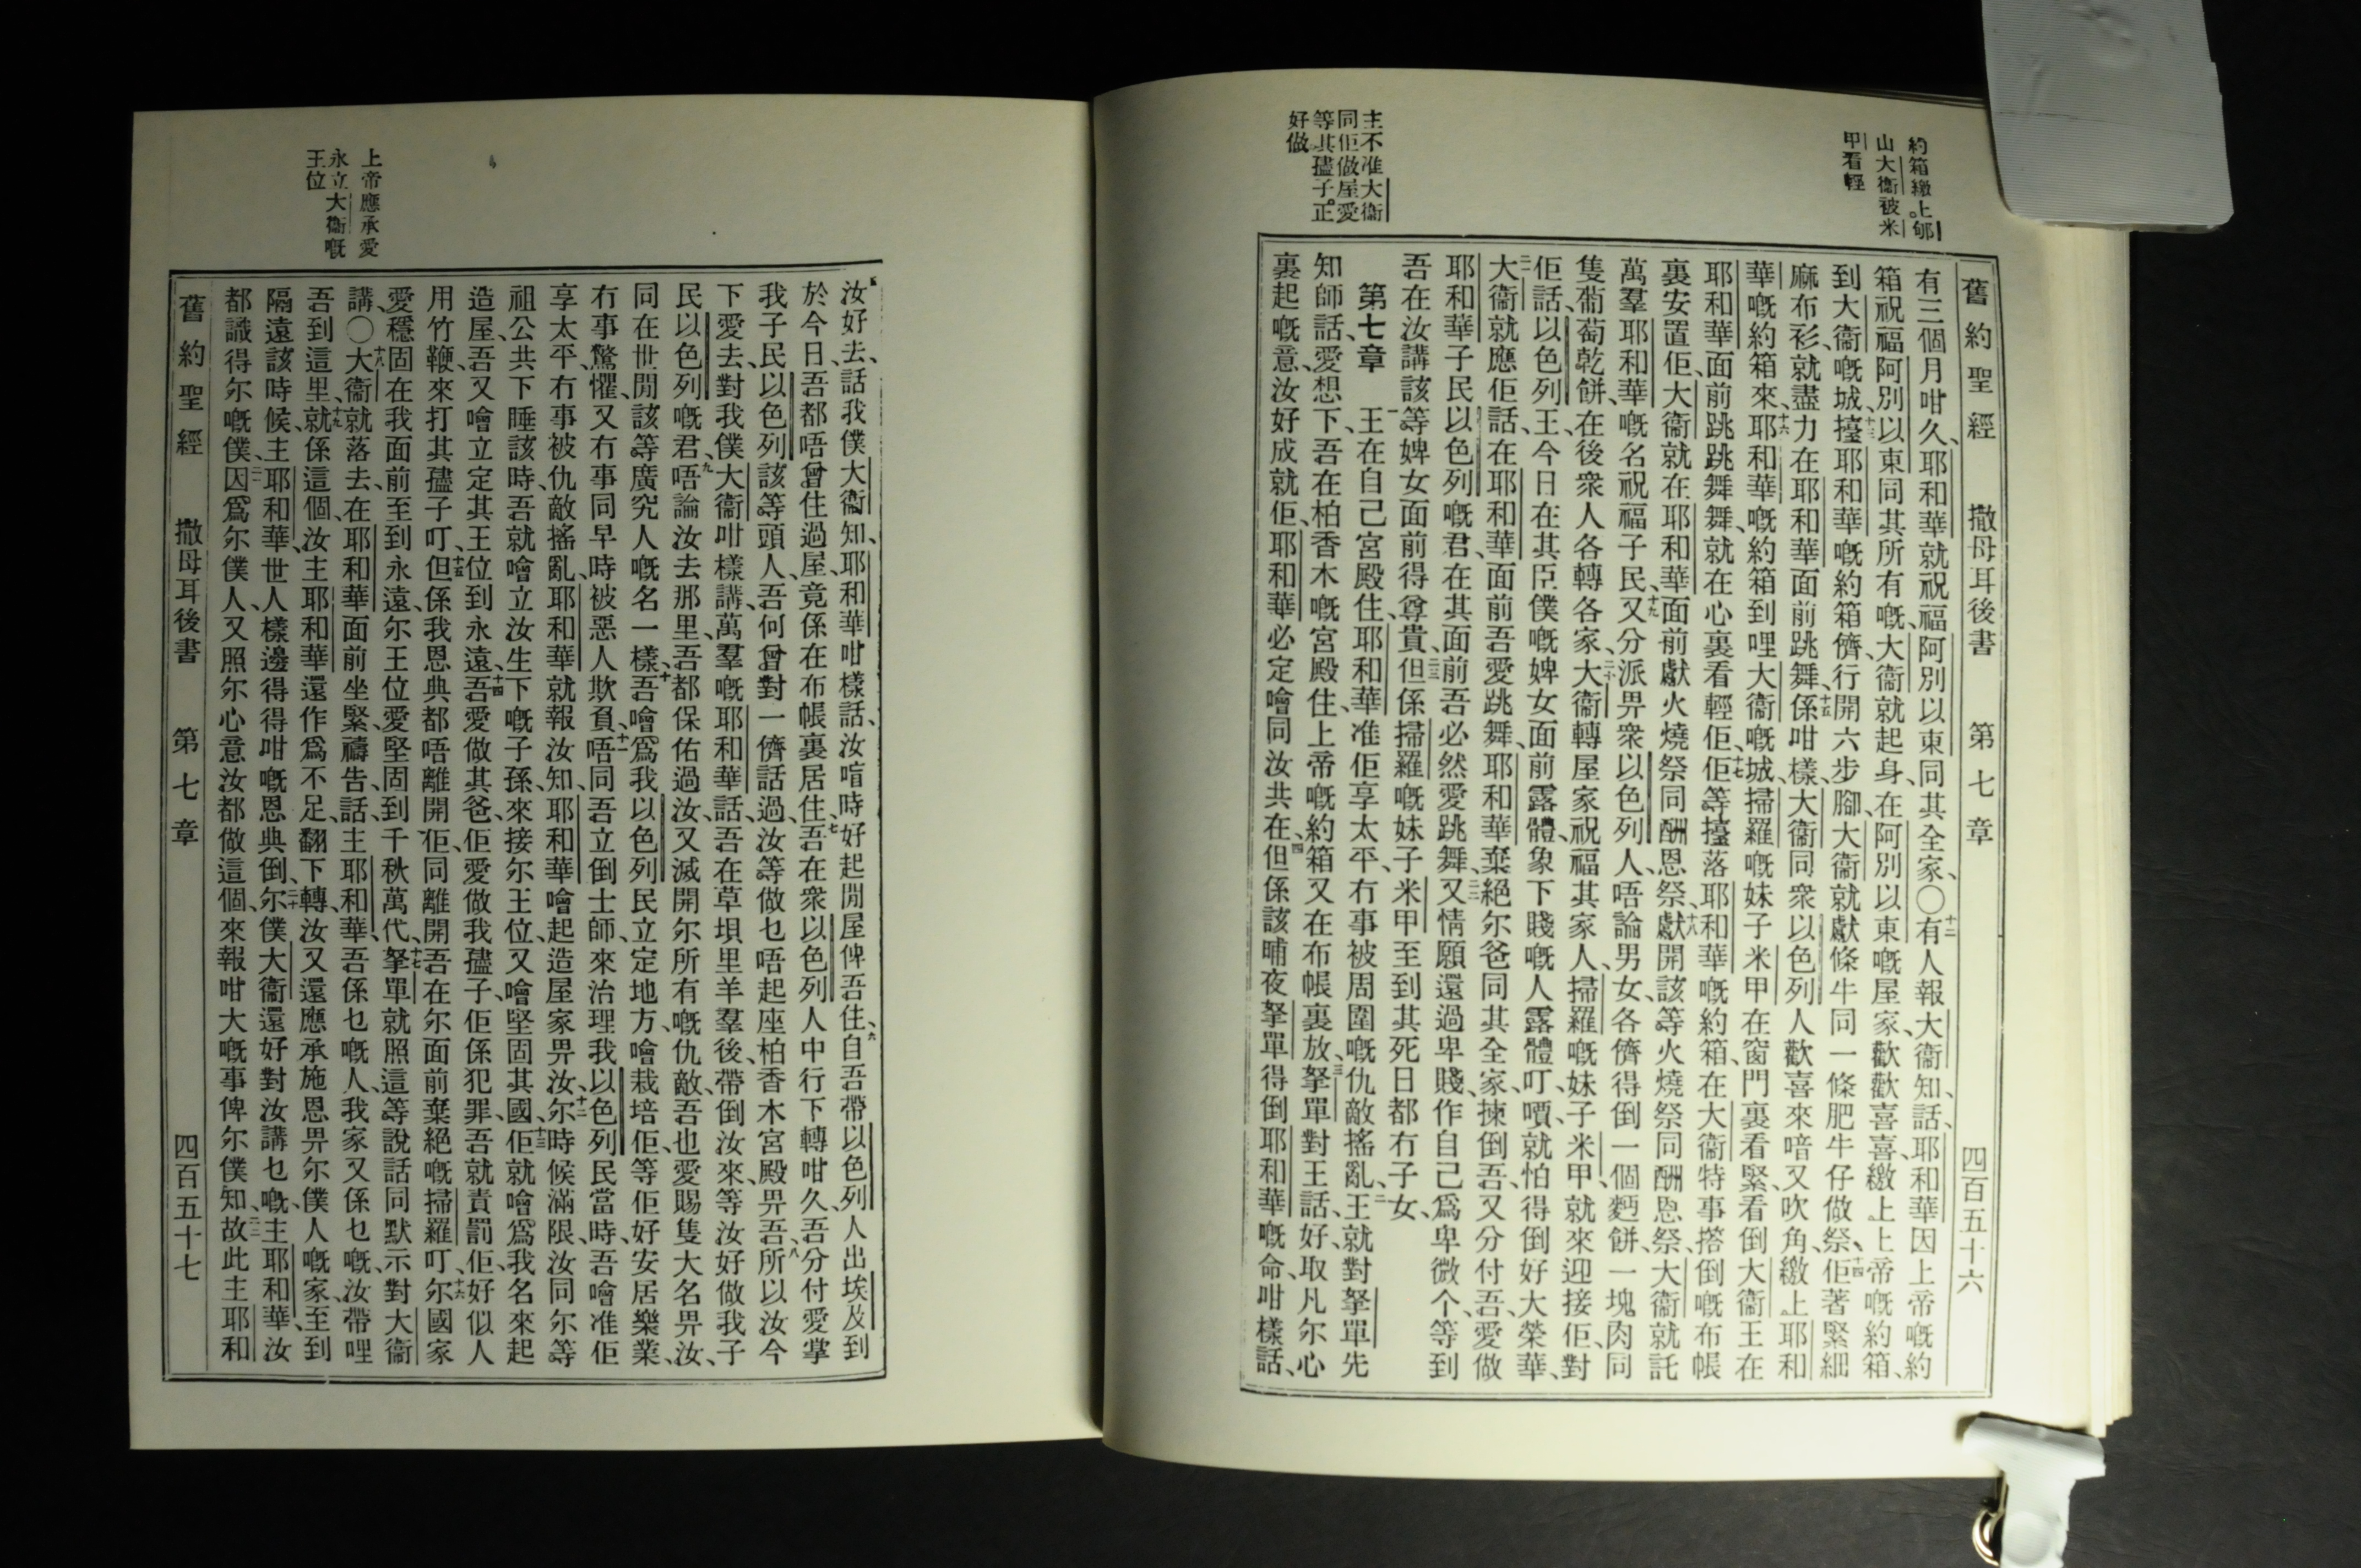 約箱繳上。郇
山大衞被米
甲看輕
主不准大衞
同佢做屋愛
等其孻子。正
好做
舊約聖經 撒母耳後書 第七章 四百五十六
有三個月咁久、耶和華就祝福、阿別以東同其全家、〇十二有人報大衞知、話、耶和華因上帝嘅約
箱、祝福阿別以東同其所有嘅、大衞就起身、在阿別以東嘅屋家、歡歡喜喜、繳上上帝嘅約箱、
到大衞嘅城、十三擡耶和華嘅約箱儕、行開六步腳、大衞就獻條牛同一條肥牛仔做祭、十四佢著緊細
麻布衫、就盡力在耶和華面前跳舞、十五係咁樣、大衞同衆以色列人歡喜來喑又吹角、繳上耶和
華嘅約箱來、十六耶和華嘅約箱到哩大衞嘅城、掃羅嘅妹子米甲在窗門裏看緊、看倒大衞王在
耶和華面前跳跳舞舞、就在心裏看輕佢、十七佢等擡落耶和華嘅約箱、在大衞特事搭倒嘅布帳
裏安置佢、大衞就在耶和華面前獻火燒祭同酬恩祭、十八獻開該等火燒祭同酬恩祭、大衞就託
萬羣耶和華嘅名祝福子民、十九又分派畀衆以色列人、唔論男女、各儕得倒一個麪餅、一塊肉同
隻葡萄乾餅、在後衆人各轉各家、二十大衞轉屋家祝福其家人、掃羅嘅妹子米甲、就來迎接佢、對
佢話、以色列王、今日在其臣僕嘅婢女面前露體、象下賤嘅人露體叮、嘖就怕得倒好大榮華、
二一大衞就應佢話、在耶和華面前吾愛跳舞、耶和華棄絕尔爸同其全家、揀倒吾、又分付吾、愛做
耶和華子民以色列嘅君、在其面前吾必然愛跳舞、二二又情願還過卑賤、作自己爲卑微个、等到
吾在汝講該等婢女面前得尊貴、二三但係掃羅嘅妹子米甲至到其死日都冇子女、
第七章 一王在自己宮殿住、耶和華准佢享太平、冇事被周圍嘅仇敵搖亂、二王就對孥單先
知師話、愛想下、吾在柏香木嘅宮殿住、上帝嘅約箱又在布帳裏放、三孥單對王話、好、取凡尔心
裏起嘅意、汝好成就佢、耶和華必定噲同汝共在、四但係該晡夜孥單得倒耶和華嘅命、咁樣話、
上帝應承愛
永立大衞嘅
王位
五汝好去、話我僕大衞知、耶和華咁樣話、汝喧時好起閒屋俾吾住、六自吾帶以色列人出埃及到
於今日、吾都唔曾住過屋、竟係在布帳裏居住、七吾在衆以色列人中行下轉咁久、吾分付愛掌
我子民以色列該等頭人、吾何曾對一儕話過、汝等做乜唔起座柏香木宮殿畀吾、八所以汝今
下愛去、對我僕大衞咁樣講、萬羣嘅耶和華話、吾在草垻里羊羣後、帶倒汝來、等汝好做我子
民以色列嘅君、九唔論汝去那里、吾都保佑過汝、又滅開尔所有嘅仇敵、吾也愛賜隻大名畀汝、
同在世閒該等廣究人嘅名一樣、十吾噲爲我以色列民立定地方、噲栽培佢、等佢好安居樂業、
冇事驚懼、又冇事同早時被惡人欺負、十一唔同吾立倒士師、來治理我以色列民當時、吾噲准佢
享太平、冇事被仇敵搖亂、耶和華就報汝知、耶和華噲起造屋家畀汝、十二尔時候滿限、汝同尔等
祖公共下睡該時、吾就噲立汝生下嘅子孫、來接尔王位、又噲堅固其國、十三佢就噲爲我名來起
造屋、吾又噲立定其王位到永遠、十四吾愛做其爸、佢愛做我孻子、佢係犯罪、吾就責罰佢、好似人
用竹鞭來打其孻子叮、十五但係我恩典都唔離開佢、同離開吾在尔面前棄絕嘅掃羅叮、十六尔國家
愛穩固在我面前至到永遠、尔王位愛堅固到千秋萬代、十七孥單就照這等說話同默示對大衞
講、〇十八大衞就落去、在耶和華面前坐緊、禱告話、主耶和華、吾係乜嘅人、我家又係乜嘅、汝帶哩
吾到這里、十九就係這個、汝主耶和華還作爲不足、翻下轉、汝又還應承施恩畀尔僕人嘅家、至到
隔遠該時候、主耶和華、世人樣邊得得咁嘅恩典倒、二十尔僕大衞還好對汝講乜嘅、主耶和華、汝
都識得尔嘅僕、二一因爲尔僕人、又照尔心意汝都做這個、來報咁大嘅事俾尔僕知、二二故此主耶和
舊約聖經 撒母耳後書 第七章 四百五十七